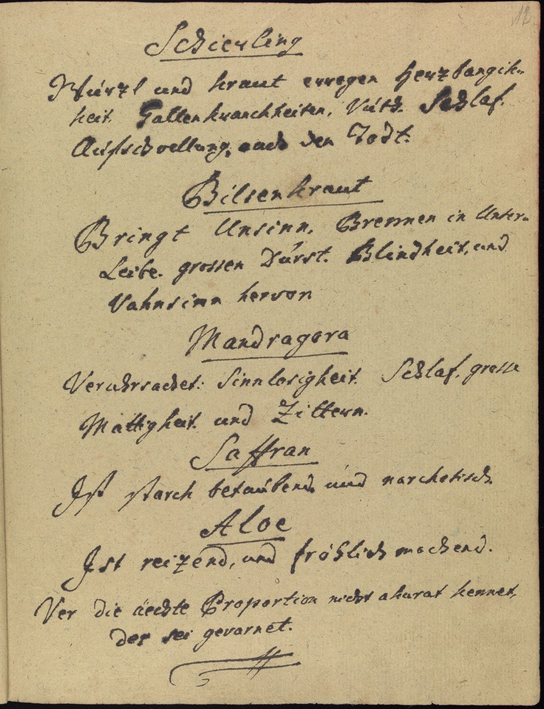 12
Schierling
Wurzl und kraut erregen Herzbangich-
keit. Gallenkranckheiten, Vuth. Schlaf.
Aufschvellung, auch den Todt.
Bilsenkraut
Bringt Unsinn, Brennen in Unter-
Leibe. grossen Durst. Blindheit, und
Vahnsinn hervor
Mandragora
Veruhrsachet: Sinnlosigheit. Schlaf. grosse
Mattigheit. und Zittern.
Saffran
Ist starch betaubend, und narchotisch
Aloe
Ist reizend, und fröhlich machend.
Ver die aechte Proportion nicht akurat kennet,
der sei gevarnet.